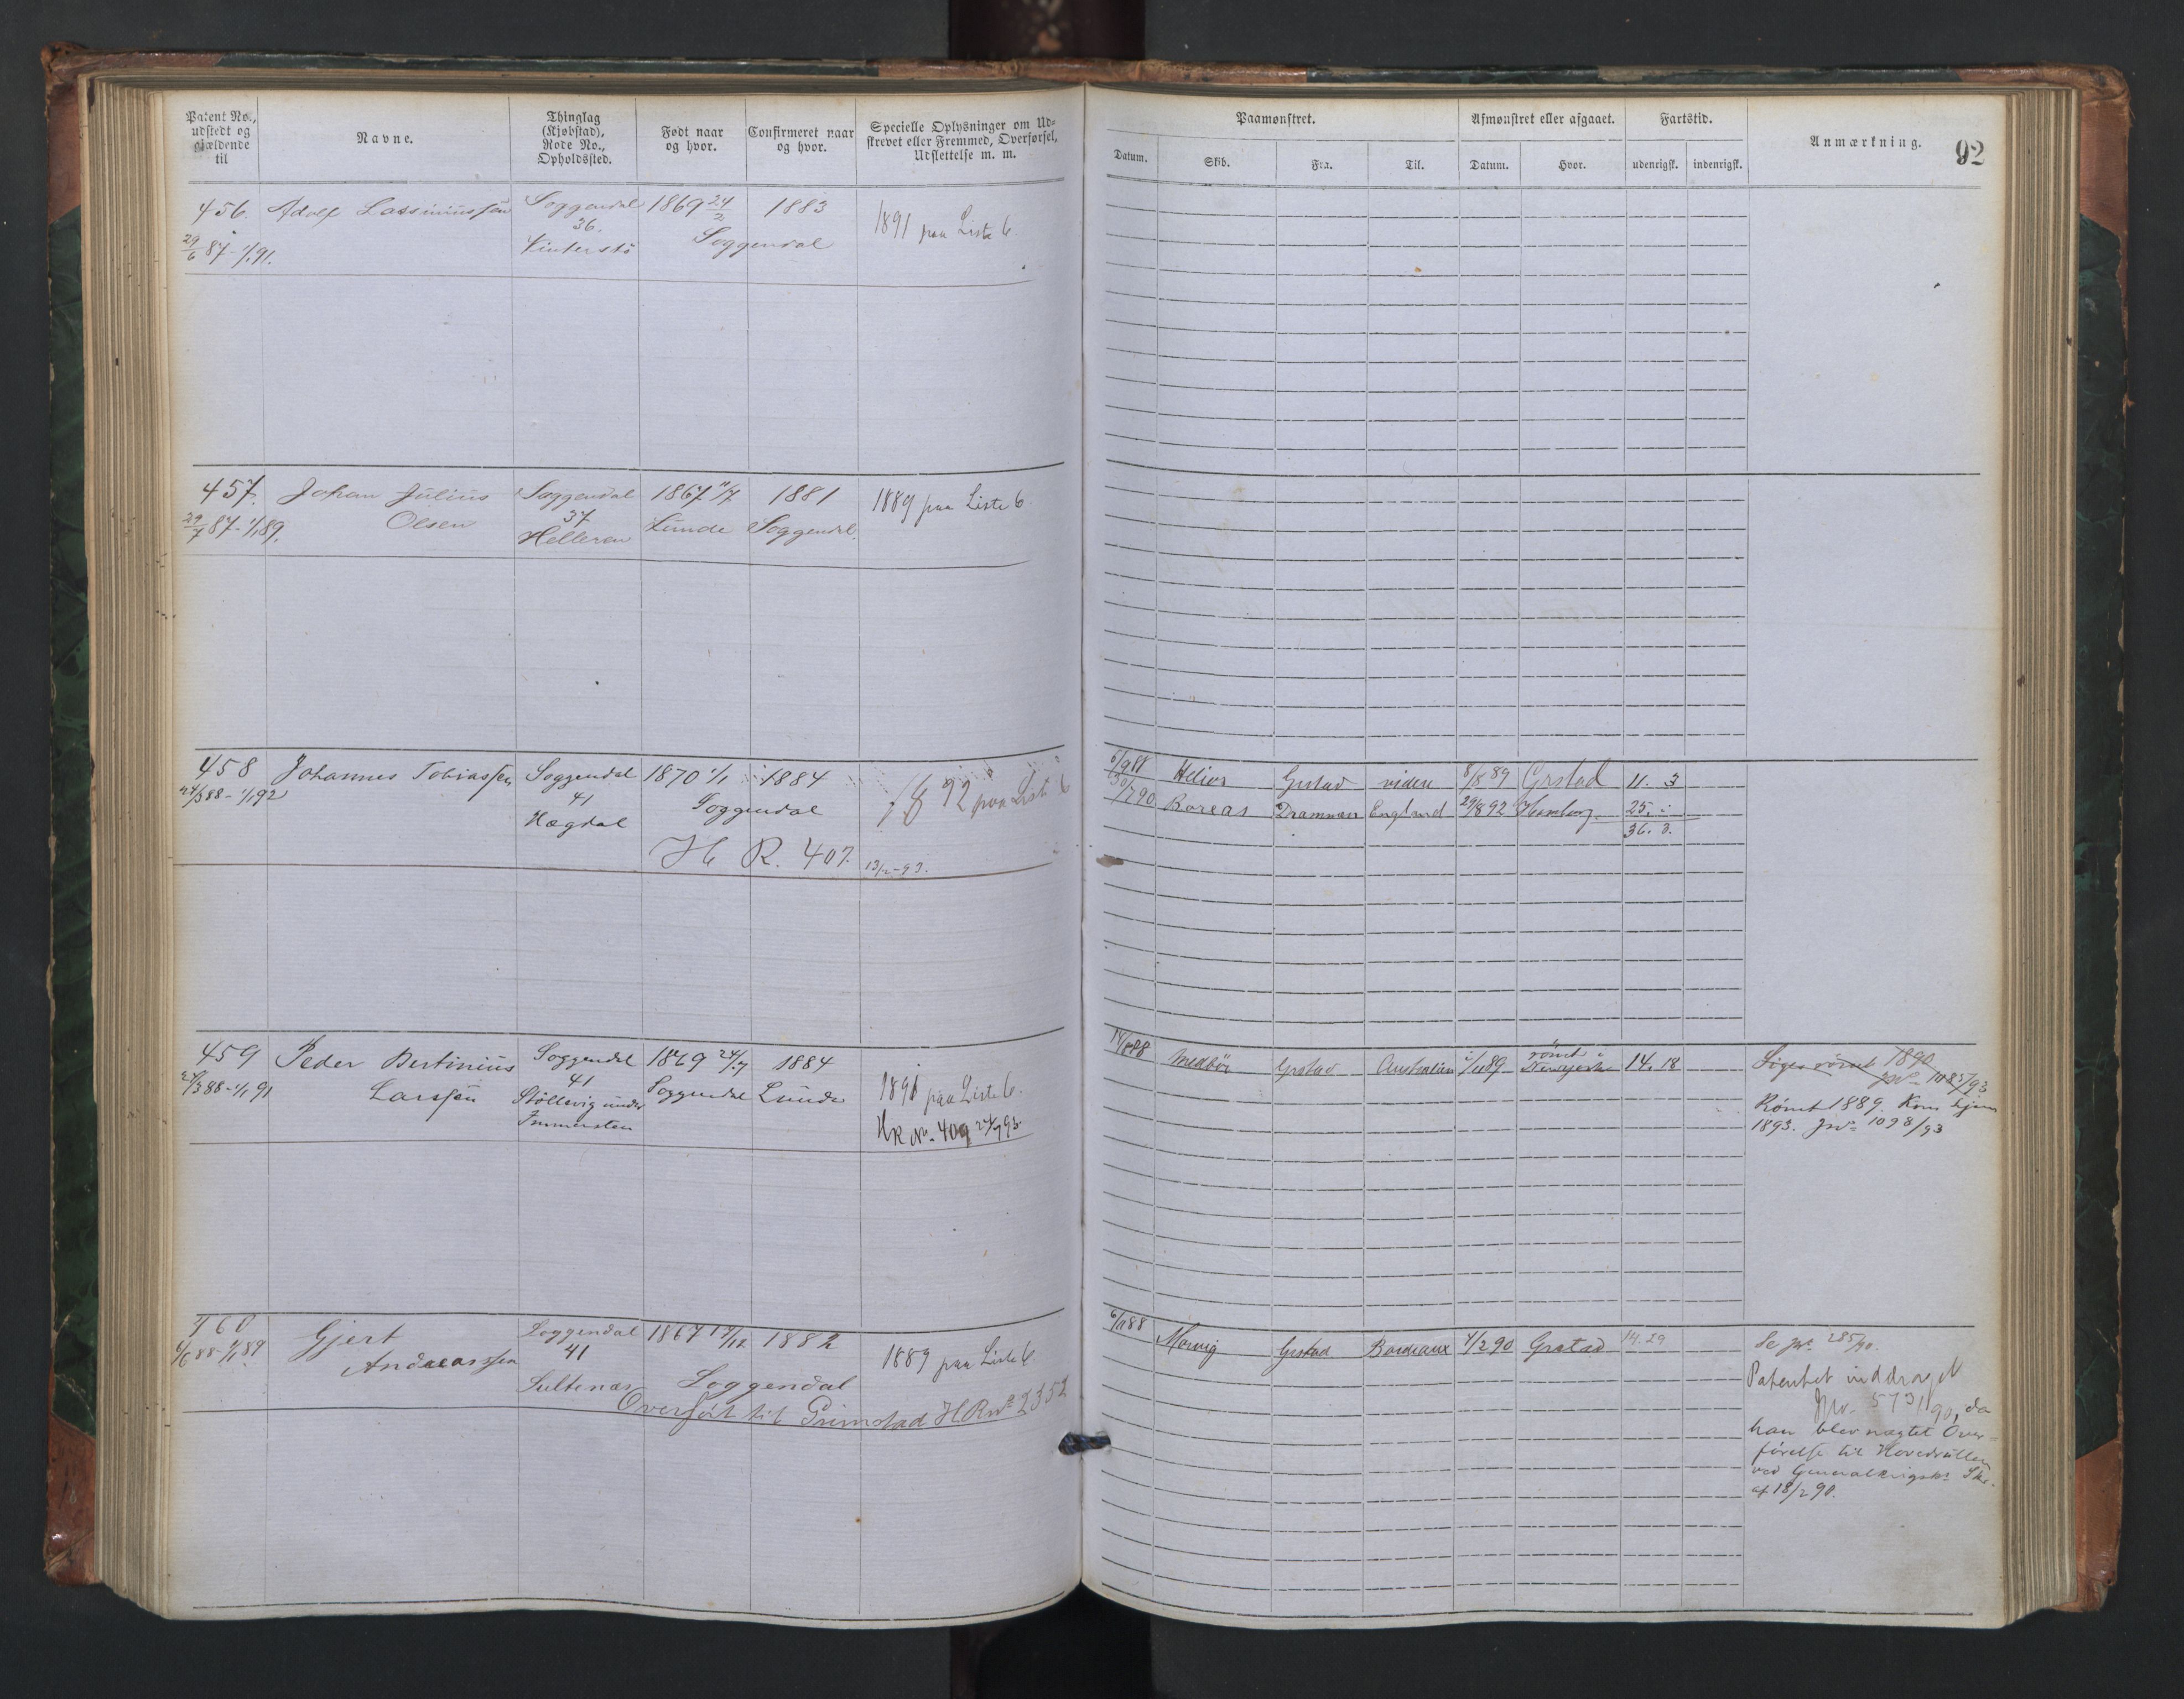 Patent No.,
udstedt og
gjældende
til
Navne.
Thinglag
(Kjøbstad),
Rode No.,
Opholdssted.
Født naar
og hvor.
Confirmeret naar
og hvor.
Specielle Oplysninger om Ud-
skrevet eller Fremmed, Overførsel,
Udslettelse m. m.
456. Adolf Lassiniussen Soggendal 1869 24/2 1883
36.
29/6 87 - 1/1 91. Vinterstø Soggendal
1891 paa Liste 6.
457. Johan Julius Soggendal 1867 11/7 1881
29/7 87 - 1/1 89. Olsen 37 Lunde Soggendal.
Helleren
1889 paa Liste 6.
458 Johannes Tobiassen Soggendal 1870 1/1 1884
24/3 88 - 1/1 92 41 Soggendal
Hægdal
1892 paa Liste 6
H R. 407. 13/2-93.
459 Peder Bertinius Soggendal 1869 24/7 1884
24/3 88 - 1/1 91 Larssen 41 Soggendal Lunde
Stöllevig under
1891 paa Liste 6.
HR No. 409 24/7 93.
460 Gjert Soggendal 1867 17/12 1882
4/6 88 - 1/1 89 Andreassen 41
Sultenæs Soggendal
1889 paa Liste 6
Overført til Grimstad HR No 2352
Paamønstret.
Afmønstret eller afgaaet.
Fartstid.
Anmærkning.
92
Datum.
Skib.
Fra.
Til.
Datum.
Hvor.
udenrigsk.
indenrigsk.
6/9 88 Helios Grstad videre 8/8 89 Grstad 11. 3
30/7 90 Boreas Drammen England 29/8 92 Hamburg. 25. "
36. 3.
14/8 88 Medbör Grstad Australien 1/1 89 römt i 14. 18
Newyork
1890
1085/93
Römt 1889. Kom hjem
1893. JNo 1098/93
6/11 88 Mornig Grstad Bordeaux 4/2 90 Grstad 14. 29
Se JNo 285/90.
Patentet inddraget
JNo. 573/90, da
han blev nægtet Over-
förelse til Hovedrullen
ved Generalkrigsk. Skr.
af 18/2 90.